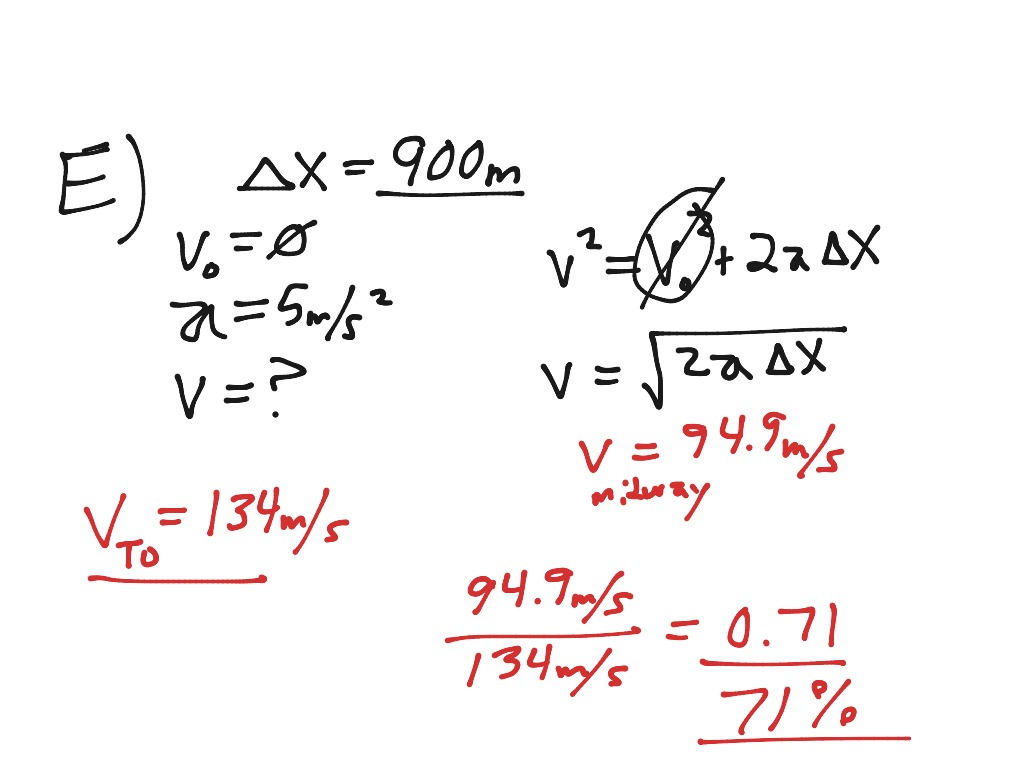 E) ΔX = 900m
V₀ = 0
a = 5m/s²
V = ?
V² = V₀² + 2a ΔX
V = √2a ΔX
V midway = 94.9m/s
V_TO = 134m/s
94.9m/s / 134m/s = 0.71
71%